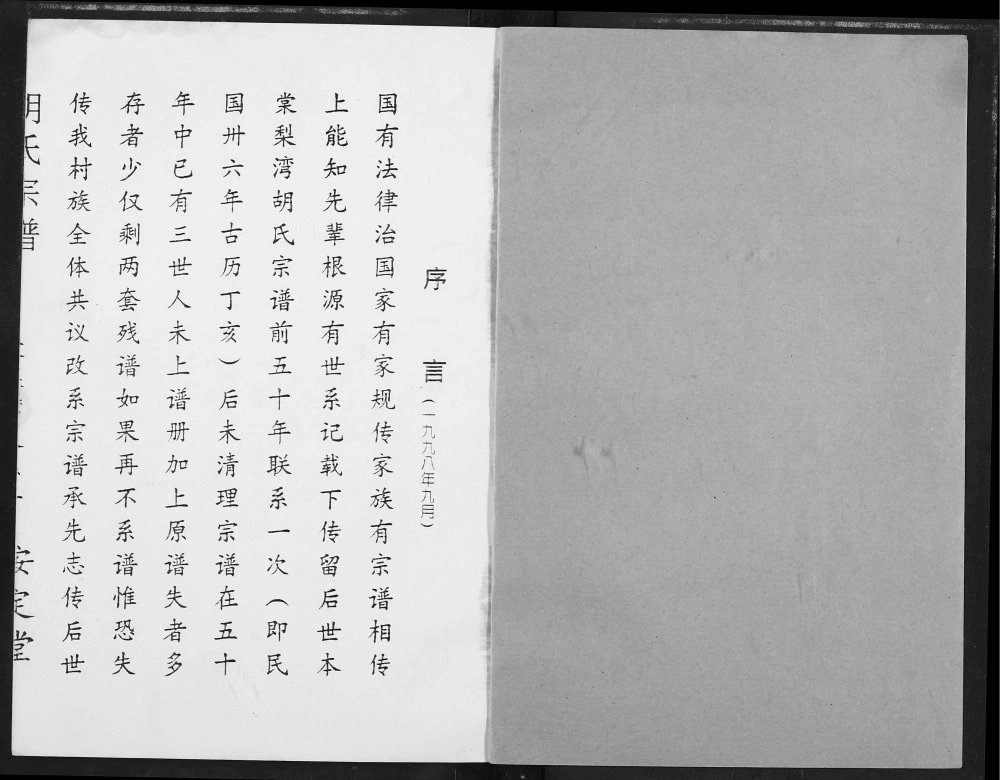 序言（一九九八年九月）
国有法律治国家有家规传家族有宗谱相传
上能知先辈根源有世系记载下传留后世本
棠梨湾胡氏宗谱前五十年联系一次（即民
国卅六年古历丁亥）后未清理宗谱在五十
年中已有三世人未上谱册加上原谱失者多
存者少仅剩两套残谱如果再不系谱惟恐失
传我村族全体共议改系宗谱承先志传后世
胡氏宗谱
安定堂